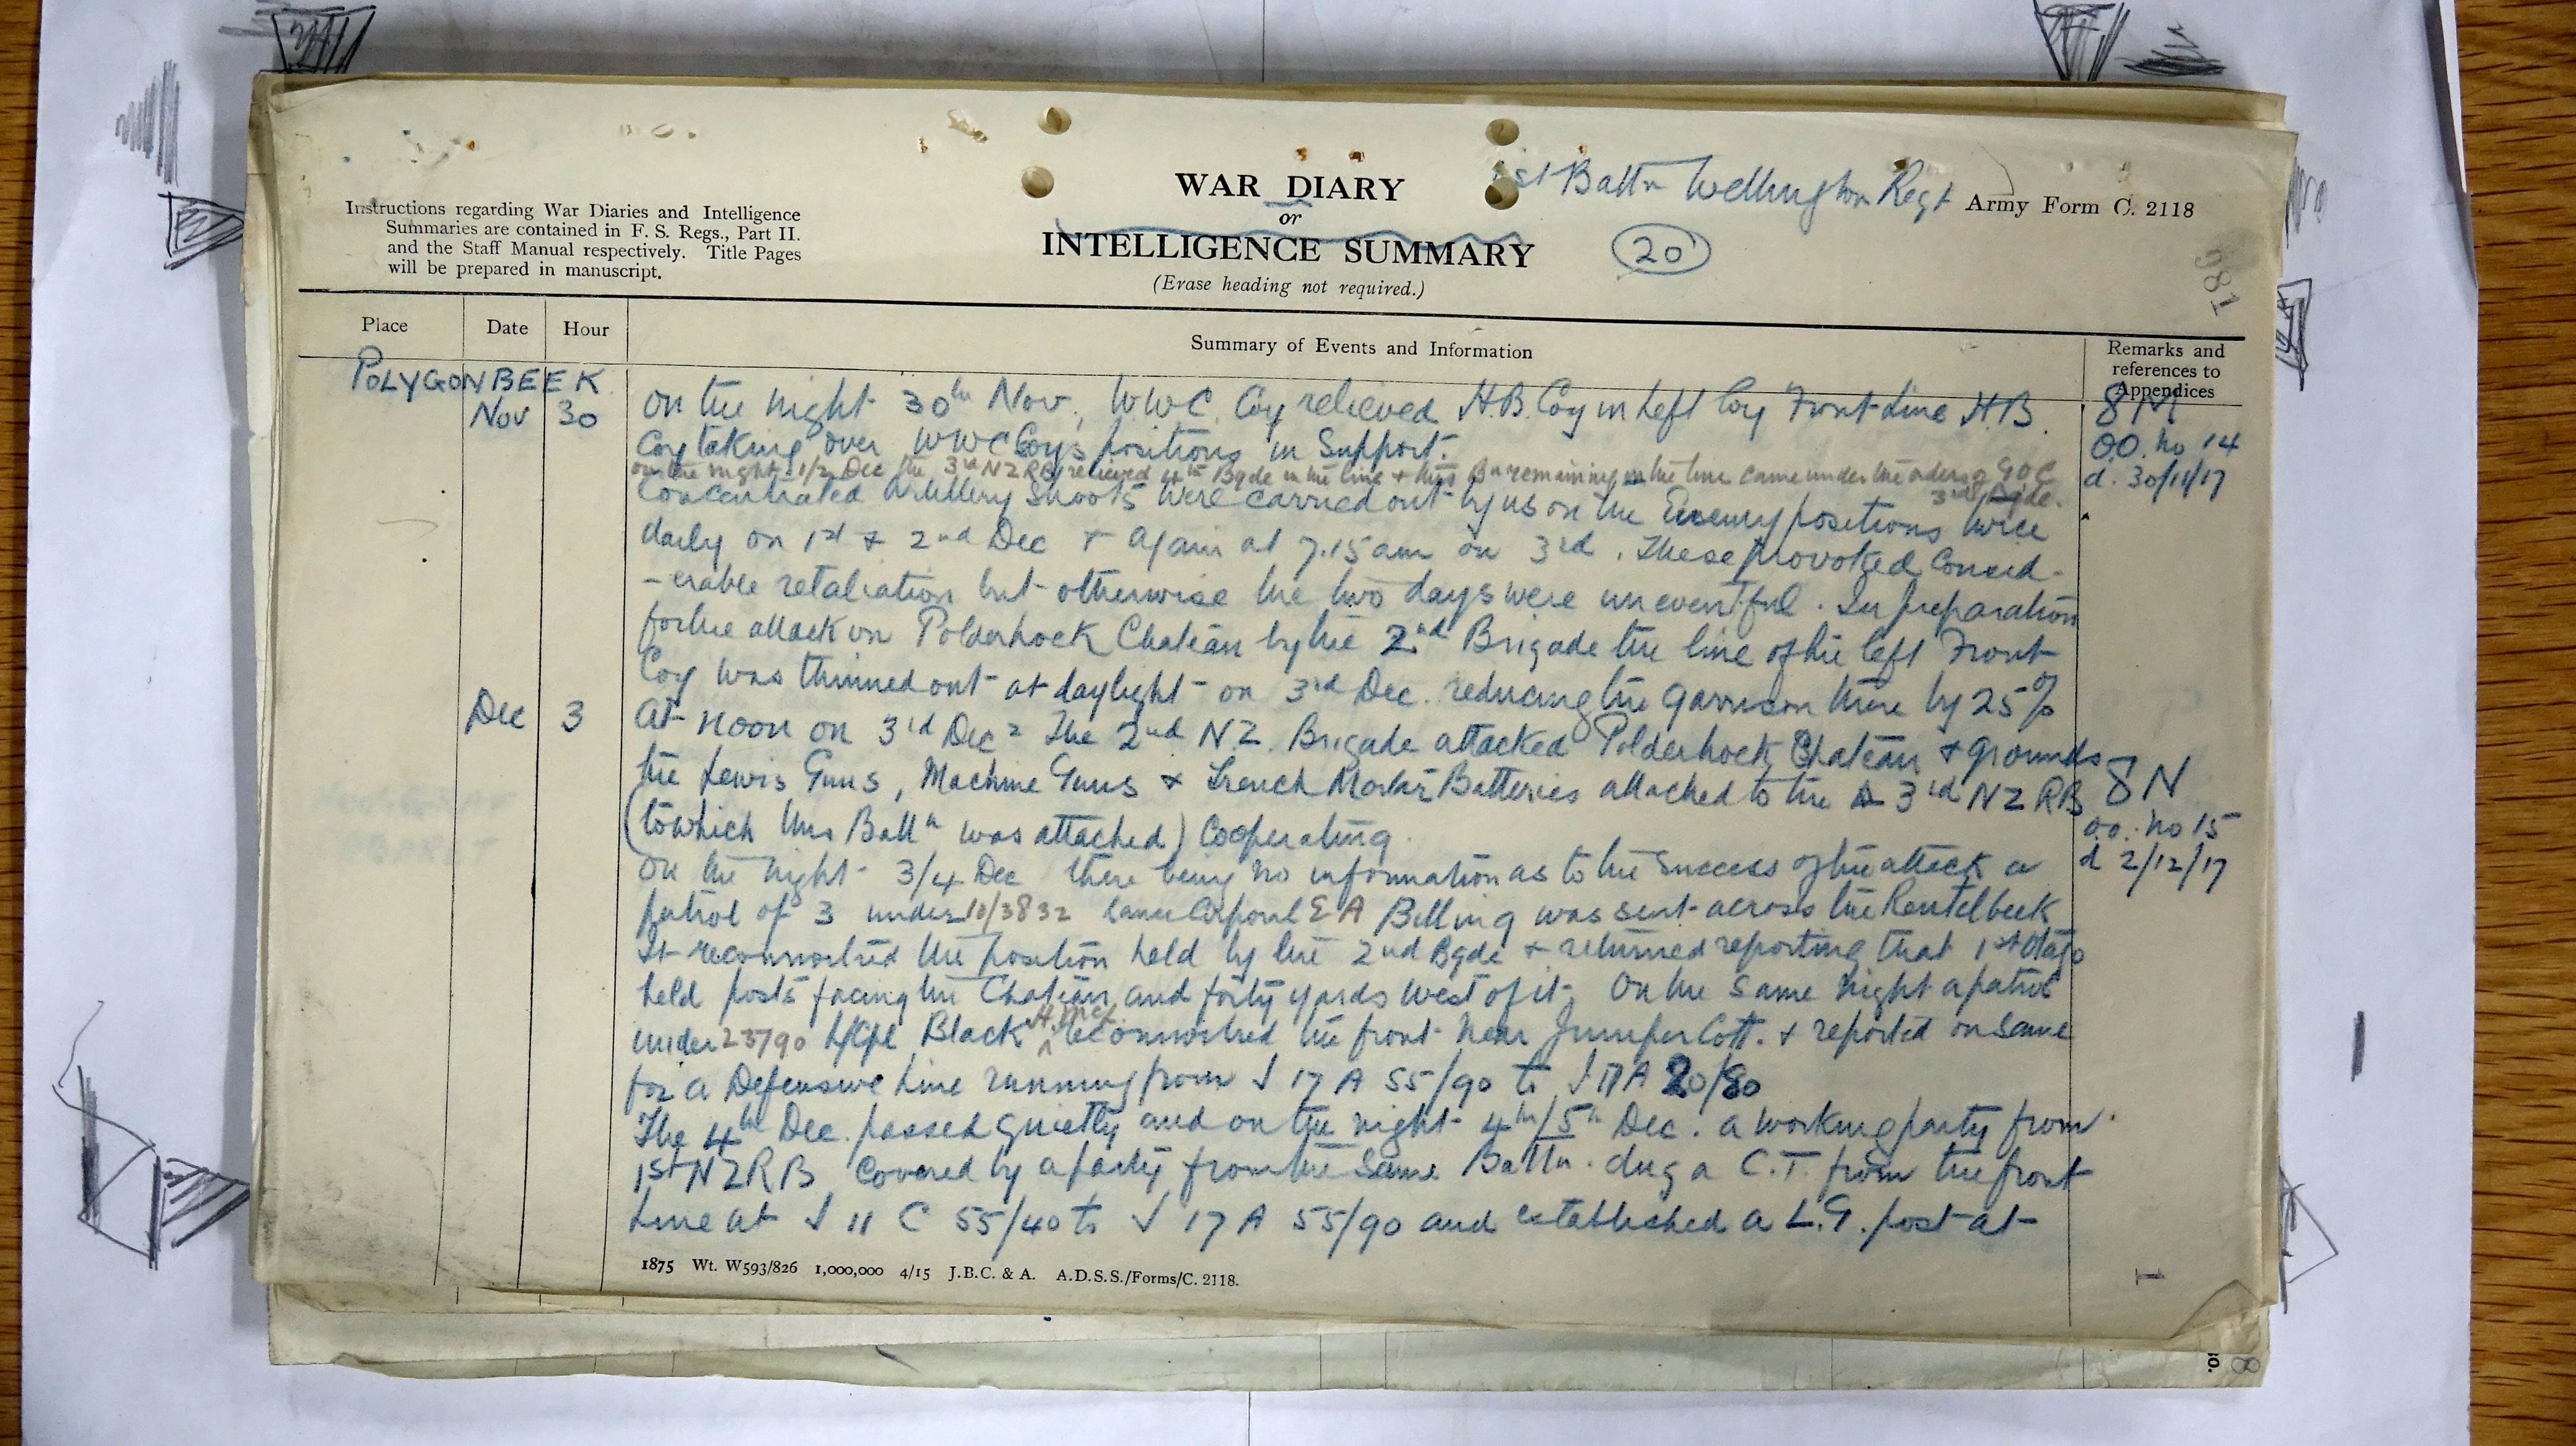 1st Battn Wellington Regt
Army Form C. 2118
WAR DIARY
or
INTELLIGENCE SUMMARY
(Erase heading not required.)
20
Instructions regarding War Diaries and Intelligence
Summaries are contained in F. S. Regs., Part II.
and the Staff Manual respectively. Title Pages
will be prepared in manuscript.
981
Place Date Hour Summary of Events and Information Remarks and references to Appendices
POLYGONBEEK
Nov 30 On the night 30th Nov. WWC Coy relieved H.B. Coy in Left Coy Front Line H.B. 8M
Coy taking over WWC Coy's positions in Support. O.O. no 14
on the night 1/2 Dec the 3rd NZRB relieved 4th Bgde in the line & this Bn remaining in the line came under the orders of GOC d. 30/11/17
3rd Bgde.
Concentrated Artillery Shoots were carried out by us on the Enemy positions twice
daily on 1st & 2nd Dec + again at 7.15 am on 3rd. These provoked consid-
-erable retaliation but otherwise the two days were uneventful. In preparation
for the attack on Polderhoek Chateau by the 2nd Brigade the line of the left Front
Coy was thinned out at daylight on 3rd Dec. reducing the garrison there by 25%
Dec 3 At noon on 3rd Dec the 2nd N.Z. Brigade attacked Polderhoek Chateau & grounds
the Lewis Guns, Machine Guns & Trench Mortar Batteries attached to the 3rd NZRB 8N
(to which this Battn was attached) Cooperating. o.o. no 15
On the night 3/4 Dec there being no information as to the success of the attack a d 2/12/17
patrol of 3 under 10/3832 Lance Corporal E A Billing was sent across the Reutelbeek
It reconnoitred the position held by the 2nd Bgde & returned reporting that 1st Otago
held posts facing the Chateau and forty yards west of it. On the same night a patrol
under 23790 L/Cpl Black reconnoitred the front near Juniper Cott. & reported on same
for a Defensive Line running from J 17 A 55/90 to J 17 A 20/80
The 4th Dec. passed quietly and on the night 4th/5th Dec. a working party from
1st NZRB covered by a party from the same Battn. dug a C.T. from the front
Line at J 11 C 55/40 to J 17 A 55/90 and established a L.G. post at
1875 Wt. W593/826 1,000,000 4/15 J.B.C. & A. A.D.S.S./Forms/C. 2118.
1